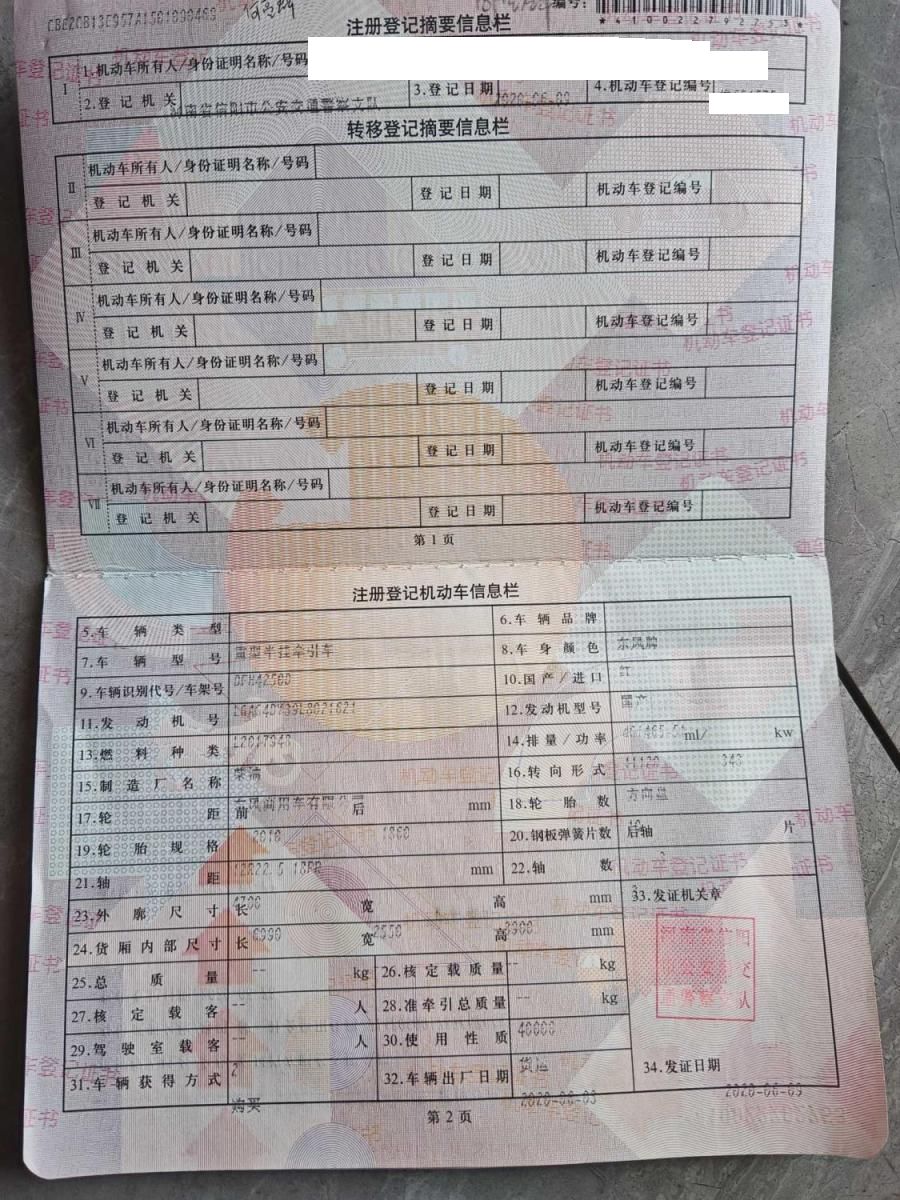 编号:
*410022792753*
注册登记摘要信息栏
I
1.机动车所有人/身份证明名称/号码
2.登记机关 河南省信阳市公安交通警察支队 3.登记日期 2020-06-09 4.机动车登记编号
转移登记摘要信息栏
II 机动车所有人/身份证明名称/号码
登记机关 登记日期 机动车登记编号
III 机动车所有人/身份证明名称/号码
登记机关 登记日期 机动车登记编号
IV 机动车所有人/身份证明名称/号码
登记机关 登记日期 机动车登记编号
V 机动车所有人/身份证明名称/号码
登记机关 登记日期 机动车登记编号
VI 机动车所有人/身份证明名称/号码
登记机关 登记日期 机动车登记编号
VII 机动车所有人/身份证明名称/号码
登记机关 登记日期 机动车登记编号
第1页
注册登记机动车信息栏
5.车辆类型 重型半挂牵引车 6.车辆品牌 东风牌
7.车辆型号 8.车身颜色 红
9.车辆识别代号/车架号 10.国产/进口 国产
11.发动机号 12.发动机型号
13.燃料种类 柴油 14.排量/功率 ml/ 343 kw
15.制造厂名称 东风商用车有限公司 16.转向形式 方向盘
17.轮距 前 2010 后 1860 mm 18.轮胎数 10
19.轮胎规格 12R22.5 18PR 20.钢板弹簧片数 后轴 片
21.轴距 mm 22.轴数 3
23.外廓尺寸 长 6990 宽 2550 高 3900 mm 33.发证机关章
24.货厢内部尺寸 长 -- 宽 -- 高 -- mm
25.总质量 -- kg 26.核定载质量 -- kg
27.核定载客 -- 人 28.准牵引总质量 40000 kg
29.驾驶室载客 2 人 30.使用性质 货运
31.车辆获得方式 购买 32.车辆出厂日期 2020-06-03 34.发证日期 2020-06-09
第2页